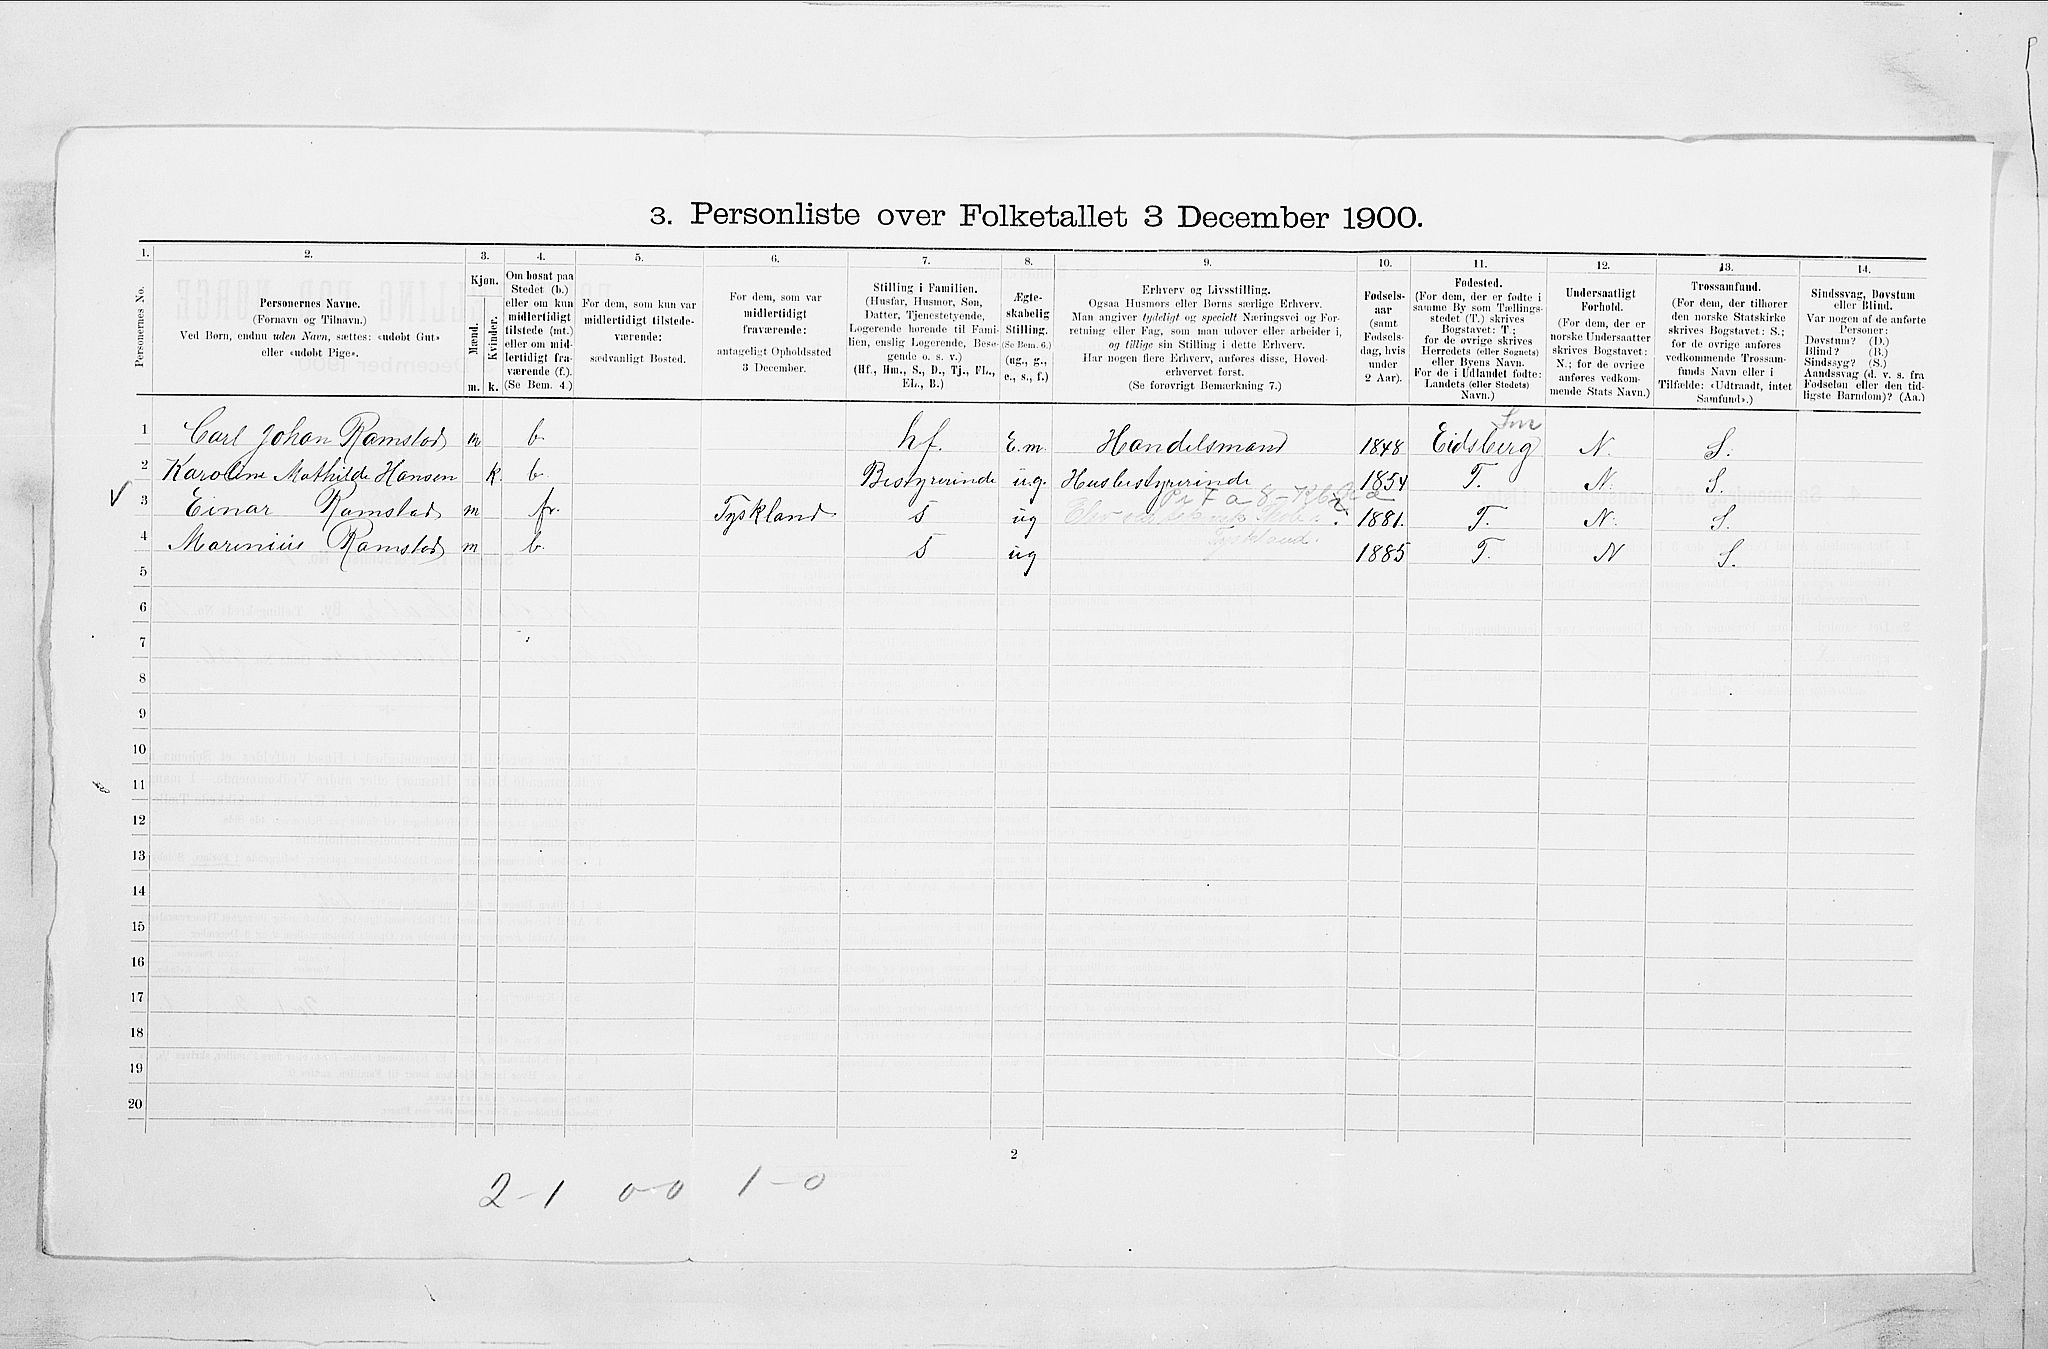 3. Personliste over Folketallet 3 December 1900.
1. 2. 3. 4. 5. 6. 7. 8. 9. 10. 11. 12. 13. 14.
Personernes No.
Personernes Navne.
(Fornavn og Tilnavn.)
Ved Børn, endnu uden Navn, sættes: «udøbt Gut»
eller «udøbt Pige».
Kjøn.
Mænd.
Kvinder.
m. k.
Om bosat paa
Stedet (b.)
eller om kun
midlertidigt
tilstede (mt.)
eller om mid-
lertidigt fra-
værende (f.).
(Se Bem. 4.)
For dem, som kun var
midlertidigt tilstede-
værende:
sædvanligt Bosted.
For dem, som var
midlertidigt
fraværende:
antageligt Opholdssted
3 December.
Stilling i Familien.
(Husfar, Husmor, Søn,
Datter, Tjenestetyende,
Logerende hørende til Fami-
lien, enslig Logerende, Besø-
gende o. s. v.)
(Hf., Hm., S., D., Tj., FL.,
EL., B.)
Ægte-
skabelig
Stilling.
(Se Bem. 6.)
(ug., g.,
e., s., f.)
Erhverv og Livsstilling.
Ogsaa Husmors eller Børns særlige Erhverv.
Man angiver tydeligt og specielt Næringsvei og For-
retning eller Fag, som man udøver eller arbeider i,
og tillige sin Stilling i dette Erhverv.
Har nogen flere Erhverv, anføres disse, Hoved-
erhvervet først.
(Se forøvrigt Bemærkning 7.)
Fødsels-
aar
(samt
Fødsels-
dag, hvis
under
2 Aar).
Fødested.
(For dem, der er fødte i
samme By som Tællings-
stedet (T.) skrives
Bogstavet: T;
for de øvrige skrives
Herredets (eller Sognets)
eller Byens Navn.
For de i Udlandet fødte:
Landets (eller Stedets)
Navn.)
Undersaatligt
Forhold.
(For dem, der er
norske Undersaatter
skrives Bogstavet:
N.; for de øvrige
anføres vedkom-
mende Stats Navn.)
Trossamfund.
(For dem, der tilhører
den norske Statskirke
skrives Bogstavet: S.;
for de øvrige anføres
vedkommende Trossam-
funds Navn eller i
Tilfælde: «Udtraadt, intet
Samfund».)
Sindssvag, Døvstum
eller Blind.
Var nogen af de anførte
Personer:
Døvstum? (D.)
Blind? (B.)
Sindssyg? (S.)
Aandssvag (d. v. s. fra
Fødselen eller den tid-
ligste Barndom)? (Aa.)
1 Carl Johan Ramstad m b. hf. E.m. Handelsmand 1848 Eidsberg N. S.
2 Karoline Mathilde Hansen k. b. Bestyrerinde ug. Husbestyrerinde 1854 T. N. S.
3 Einar Ramstad m fr. Tyskland S ug 1881. T. N. S.
Tyskland.
4 Marinius Ramstad m b. S ug 1885 T. N S.
5
6
7
8
9
10
11
12
13
14
15
16
17
18
19
20
2
2-1 0-0 1-0